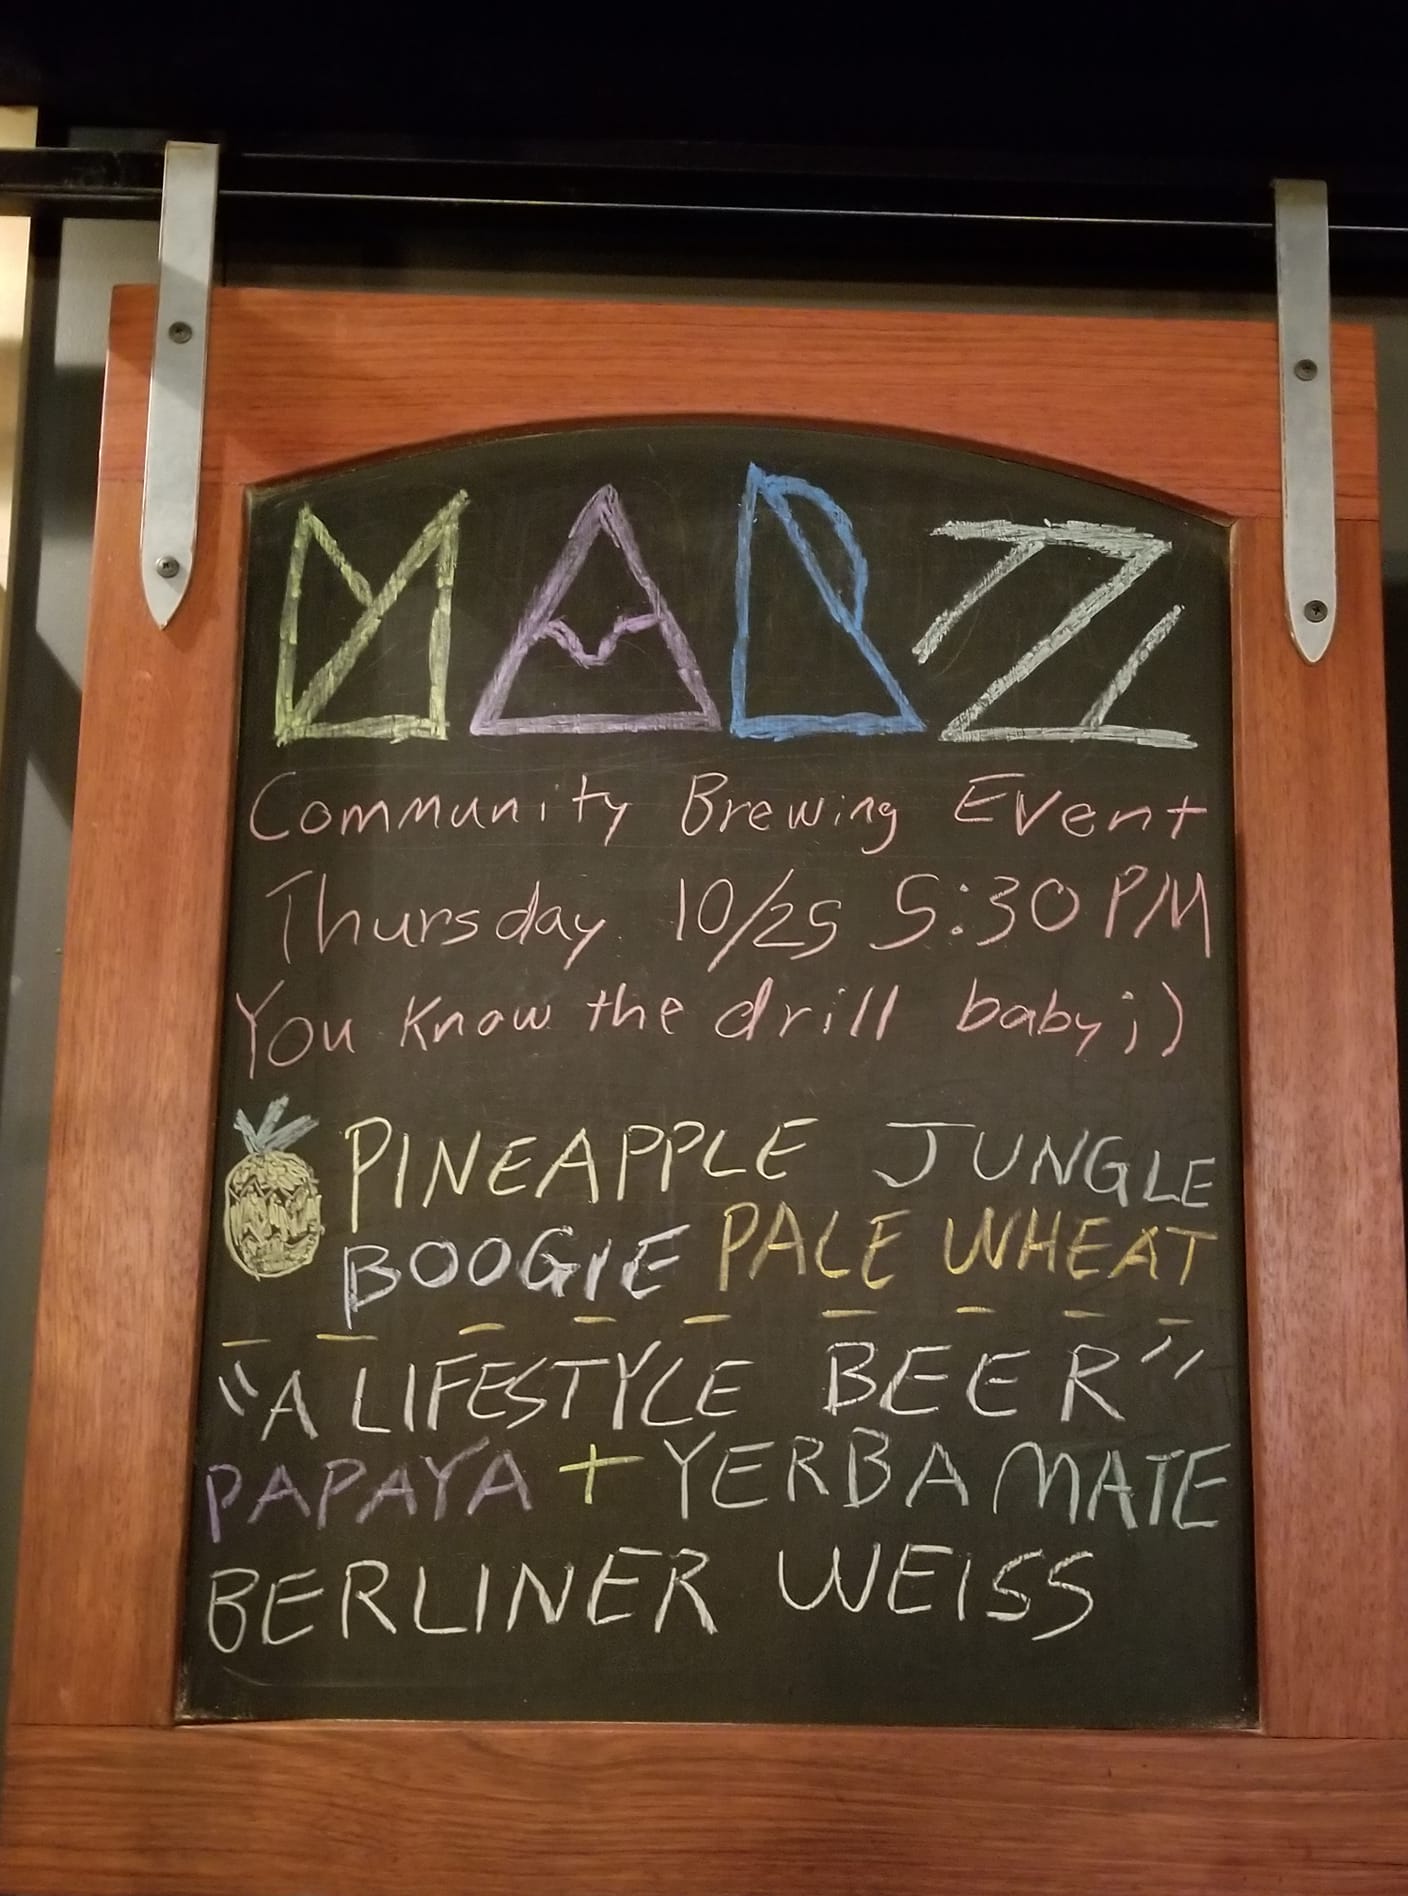 MARZ
Community Brewing Event
Thursday 10/25 5:30 PM
You Know the drill baby ;)
PINEAPPLE JUNGLE
BOOGIE PALE WHEAT
"A LIFESTYLE BEER"
PAPAYA + YERBA MATE
BERLINER WEISS